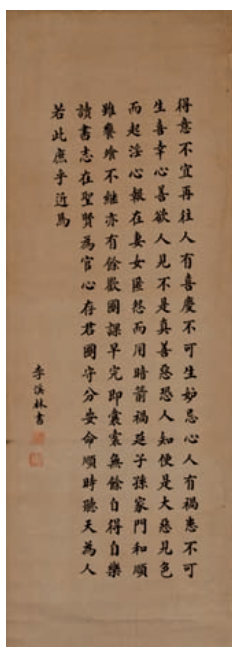 得意不宜再往人有喜慶不可生妒忌心人有禍患不可
生喜幸心善欲人見不是真善惡恐人知便是大惡見色
而起淫心報在妻女匿怨而用暗箭禍延子孫家門和順
雖饔飧不繼亦有餘歡國課早完即囊橐無餘自得自樂
讀書志在聖賢為官心存君國守分安命順時聽天為人
若此庶乎近焉
李溪林書